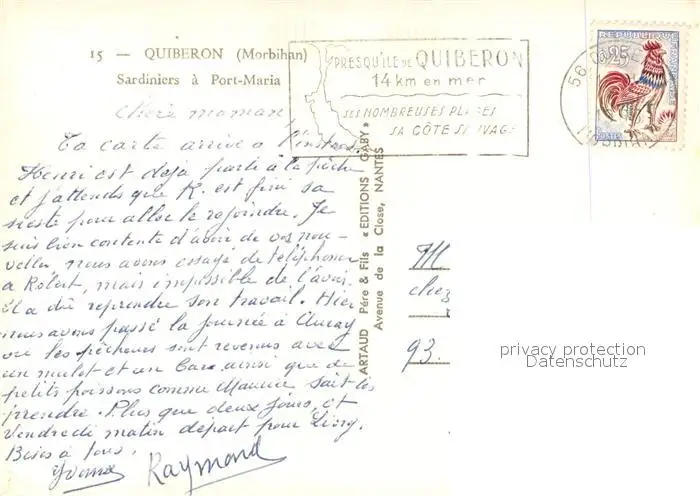 15 — QUIBERON (Morbihan)
Sardiniers à Port-Maria
PRESQU'ILE DE QUIBERON
14 km en mer
SES NOMBREUSES PLAGES
SA CÔTE SAUVAGE
0,25
REPUBLIQUE FRANCAISE
POSTES
56
Chère maman
Ta carte arrive à l'instant
Henri est déjà parti à la pêche
et j'attends que R. est fini sa
sieste pour aller le rejoindre. Je
suis bien contente d'avoir de vos nou-
velles, nous avons essayé de téléphoner
à Robert, mais impossible de l'avoir.
il a dû reprendre son travail. Hier
nous avons passé la journée à Auray
où les pêcheurs sont revenus avec
un mulet et un Bar ainsi que de
petits poissons comme Maurice sait les
prendre. Plus que deux jours, et
Vendredi matin départ pour Livry.
Bises à tous.
Yvonne Raymond
ARTAUD Père & Fils « EDITIONS GABY »
Avenue de la Close, NANTES
M
chez
93.
privacy protection
Datenschutz